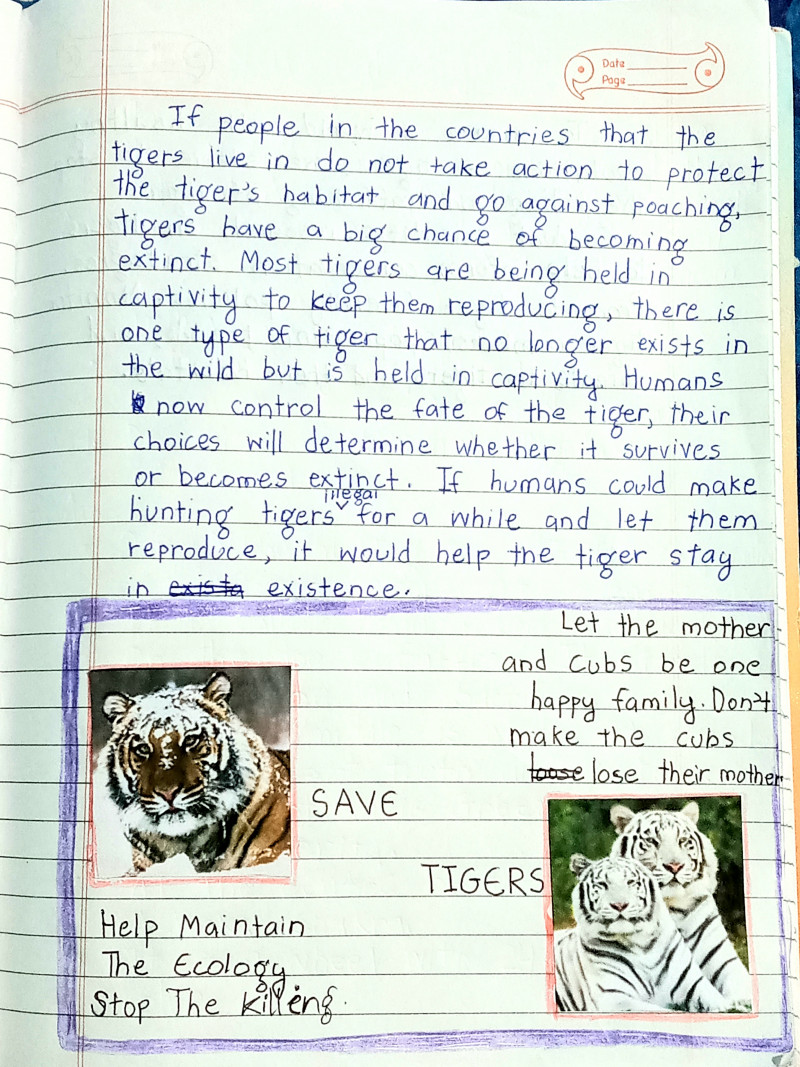 Date
Page
If people in the countries that the
tigers live in do not take action to protect
the tiger's habitat and go against poaching,
tigers have a big chance of becoming
extinct. Most tigers are being held in
captivity to keep them reproducing, there is
one type of tiger that no longer exists in
the wild but is held in captivity. Humans
now control the fate of the tiger, their
choices will determine whether it survives
or becomes extinct. If humans could make
illegal
hunting tigers for a while and let them
reproduce, it would help the tiger stay
in exista existence.
Let the mother
and cubs be one
happy family. Don't
make the cubs
loose lose their mother
SAVE
TIGERS
Help Maintain
The Ecology
Stop The Killeng.